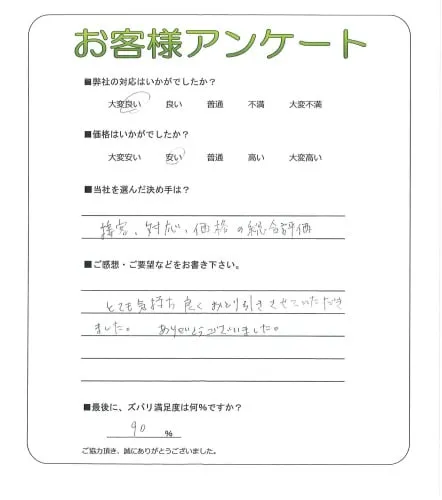 お客様アンケート
■弊社の対応はいかがでしたか？
大変良い 良い 普通 不満 大変不満
■価格はいかがでしたか？
大変安い 安い 普通 高い 大変高い
■当社を選んだ決め手は？
接客、対応、価格の総合評価
■ご感想・ご要望などをお書き下さい。
とても気持ち良くお取り引きさせていただき
ました。 ありがとうございました。
■最後に、ズバリ満足度は何%ですか？
90 %
ご協力頂き、誠にありがとうございました。